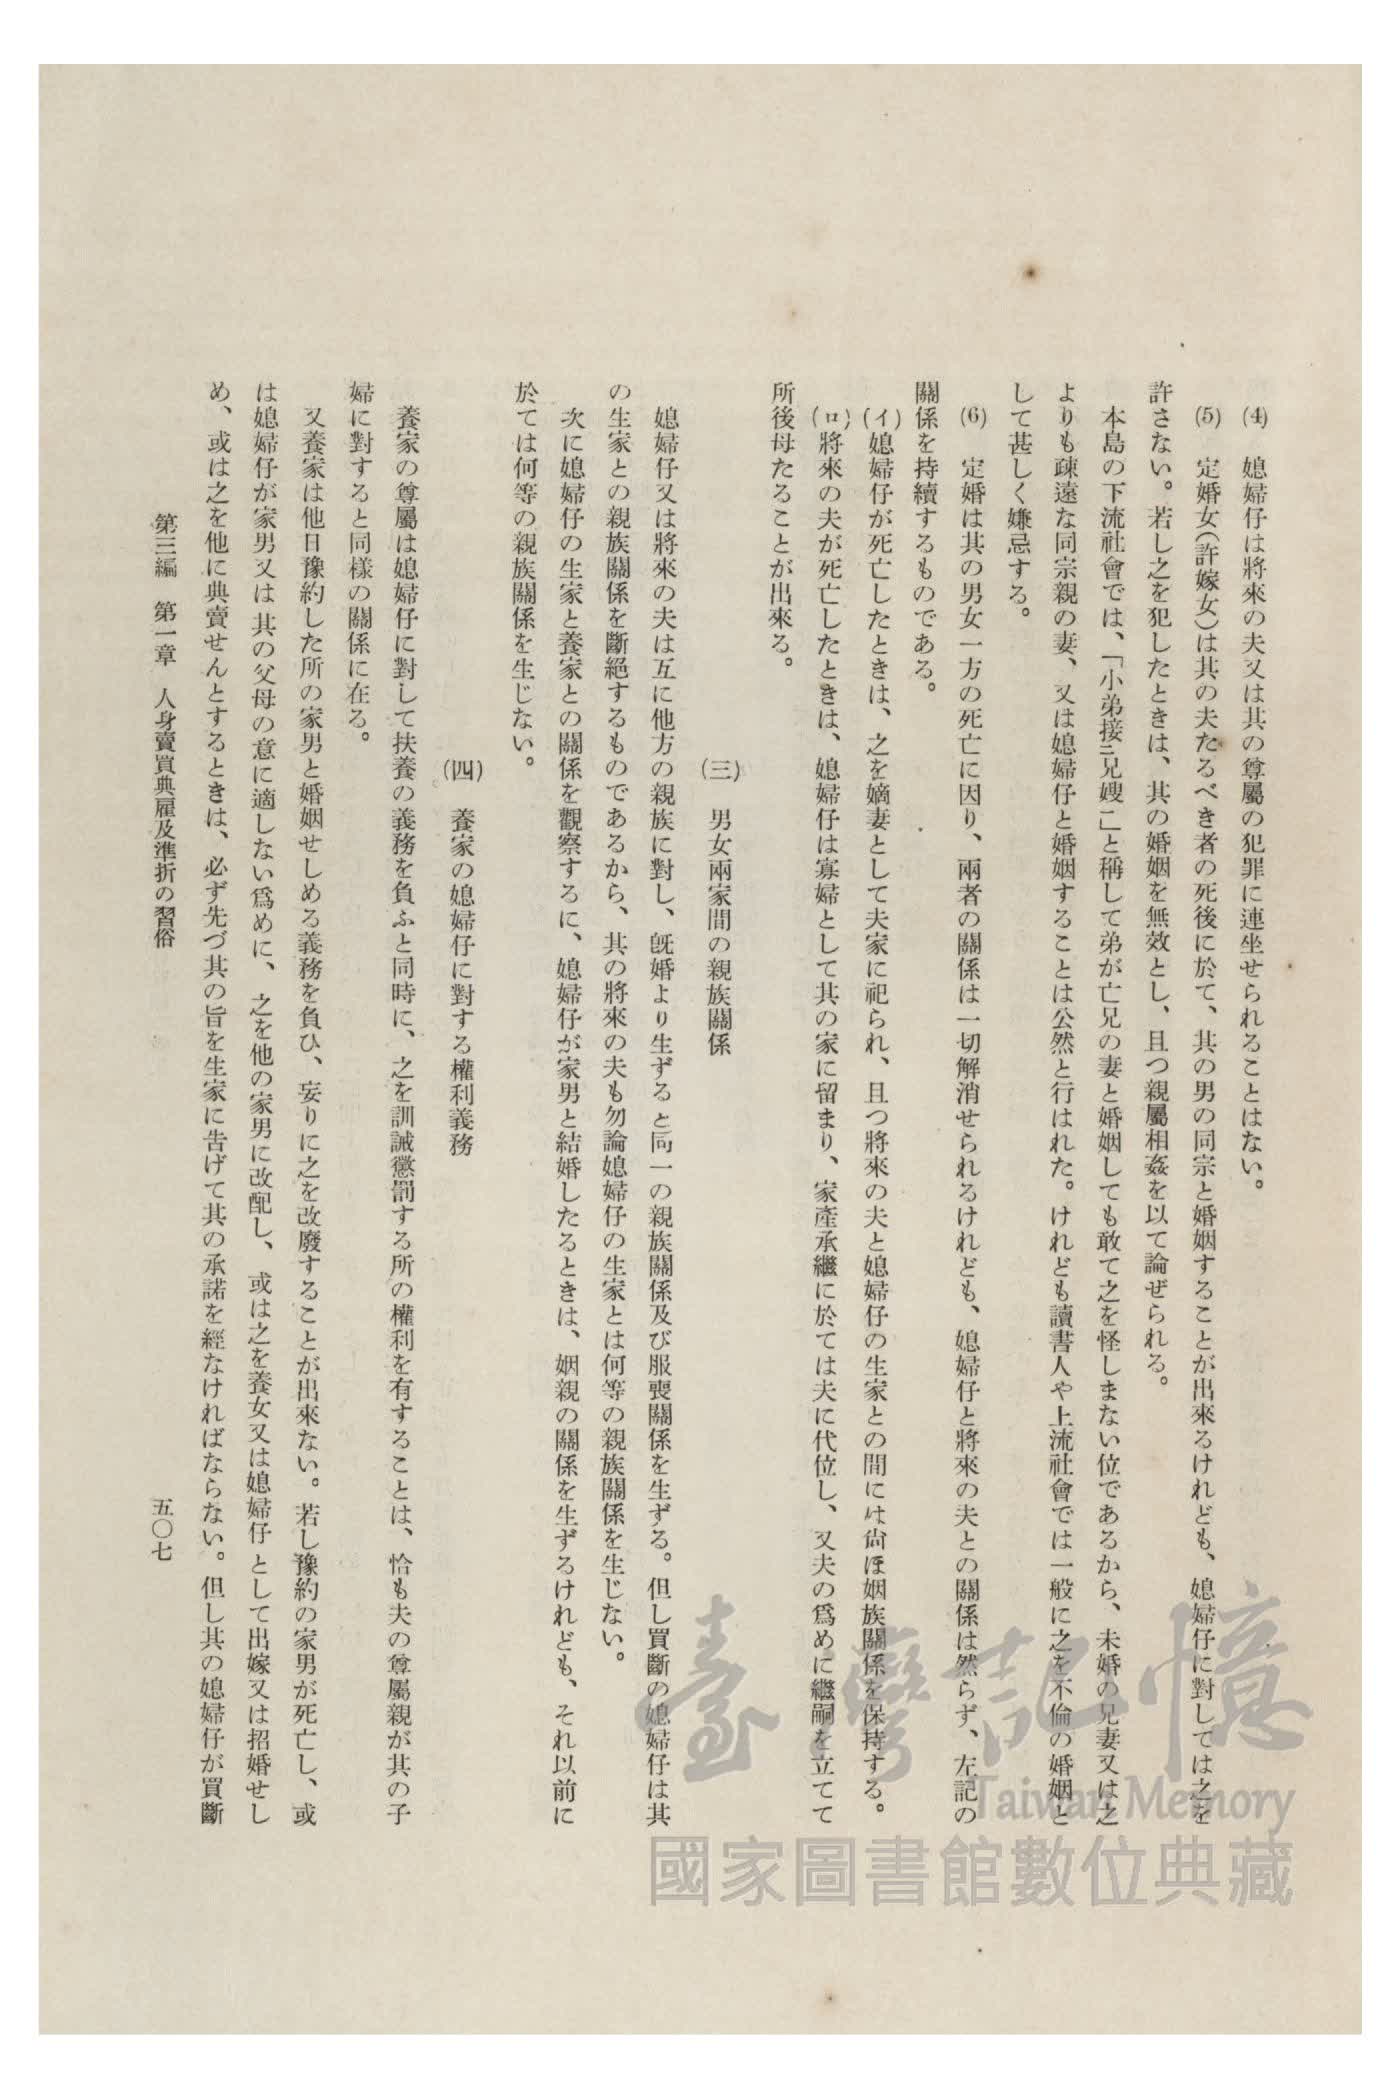 (4)　媳婦仔は將來の夫又は其の尊屬の犯罪に連坐せられることはない。
(5)　定婚女(許嫁女)は其の夫たるべき者の死後に於て、其の男の同宗と婚姻することが出來るけれども、媳婦仔に對しては之を
許さない。若し之を犯したときは、其の婚姻を無效とし、且つ親屬相姦を以て論ぜられる。
本島の下流社會では、「小弟接ニ兄嫂一」と稱して弟が亡兄の妻と婚姻しても敢て之を怪しまない位であるから、未婚の兄妻又は之
よりも疎遠な同宗親の妻、又は媳婦仔と婚姻することは公然と行はれた。けれども讀書人や上流社會では一般に之を不倫の婚姻と
して甚しく嫌忌する。
(6)　定婚は其の男女一方の死亡に因り、兩者の關係は一切解消せられるけれども、媳婦仔と將來の夫との關係は然らず、左記の
關係を持續するものである。
(イ)媳婦仔が死亡したときは、之を嫡妻として夫家に祀られ、且つ將來の夫と媳婦仔の生家との間には尙ほ姻族關係を保持する。
(ロ)將來の夫が死亡したときは、媳婦仔は寡婦として其の家に留まり、家產承繼に於ては夫に代位し、又夫の爲めに繼嗣を立てて
所後母たることが出來る。
(三)　男女兩家間の親族關係
媳婦仔又は將來の夫は互に他方の親族に對し、旣婚より生ずると同一の親族關係及び服喪關係を生ずる。但し買斷の媳婦仔は其
の生家との親族關係を斷絕するものであるから、其の將來の夫も勿論媳婦仔の生家とは何等の親族關係を生じない。
次に媳婦仔の生家と養家との關係を觀察するに、媳婦仔が家男と結婚したるときは、姻親の關係を生ずるけれども、それ以前に
於ては何等の親族關係を生じない。
(四)　養家の媳婦仔に對する權利義務
養家の尊屬は媳婦仔に對して扶養の義務を負ふと同時に、之を訓誡懲罰する所の權利を有することは、恰も夫の尊屬親が其の子
婦に對すると同樣の關係に在る。
又養家は他日豫約した所の家男と婚姻せしめる義務を負ひ、妄りに之を改廢することが出來ない。若し豫約の家男が死亡し、或
は媳婦仔が家男又は其の父母の意に適しない爲めに、之を他の家男に改配し、或は之を養女又は媳婦仔として出嫁又は招婚せし
め、或は之を他に典賣せんとするときは、必ず先づ其の旨を生家に吿げて其の承諾を經なければならない。但し其の媳婦仔が買斷
第三編　第一章　人身賣買典雇及準折の習俗
五〇七
臺灣記憶
Taiwan Memory
國家圖書館數位典藏